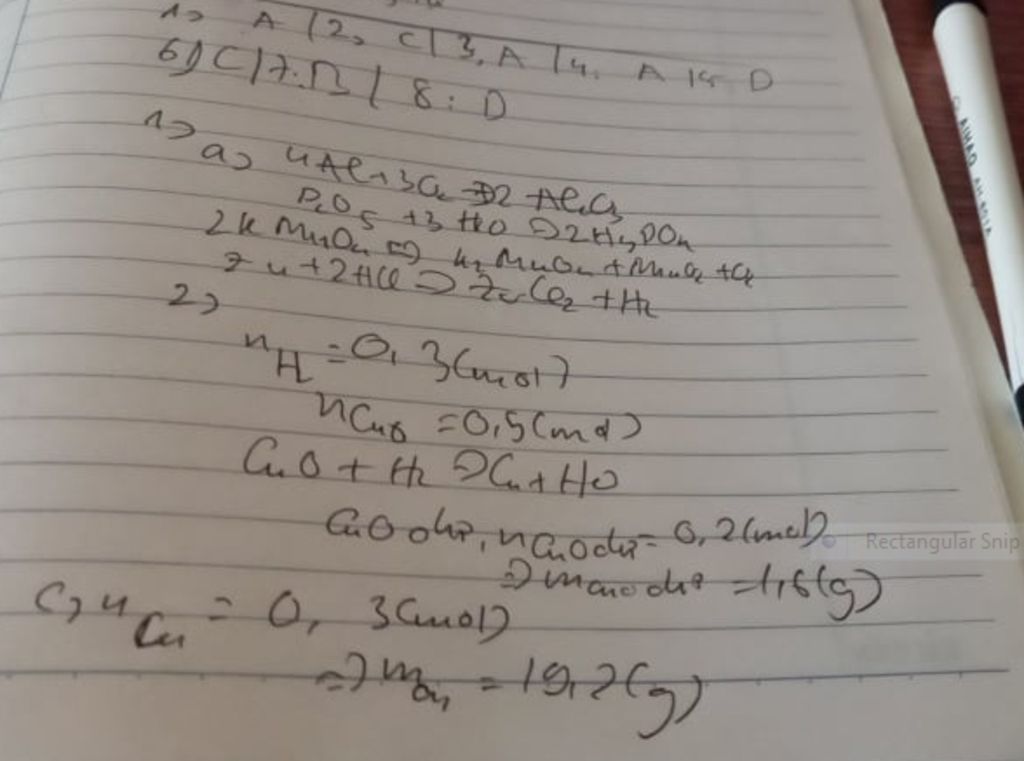 1) A | 2, C | 3, A | 4. A | 5 D
6) C | 7: B | 8: D
1)
a) 4Al + 3O2 → 2 Al2O3
P2O5 + 3 H2O → 2H3PO4
2KMnO4 → K2MnO4 + MnO2 + O2
Zn + 2HCl → ZnCl2 + H2
2)
nH2 = 0,3(mol)
nCuO = 0,5(mol)
CuO + H2 → Cu + H2O
CuO dư, nCuO dư = 0,2(mol)
Rectangular Snip
⇒ mCuO dư = 1,6(g)
c, nCu = 0, 3(mol)
⇒ mCu = 19,2(g)